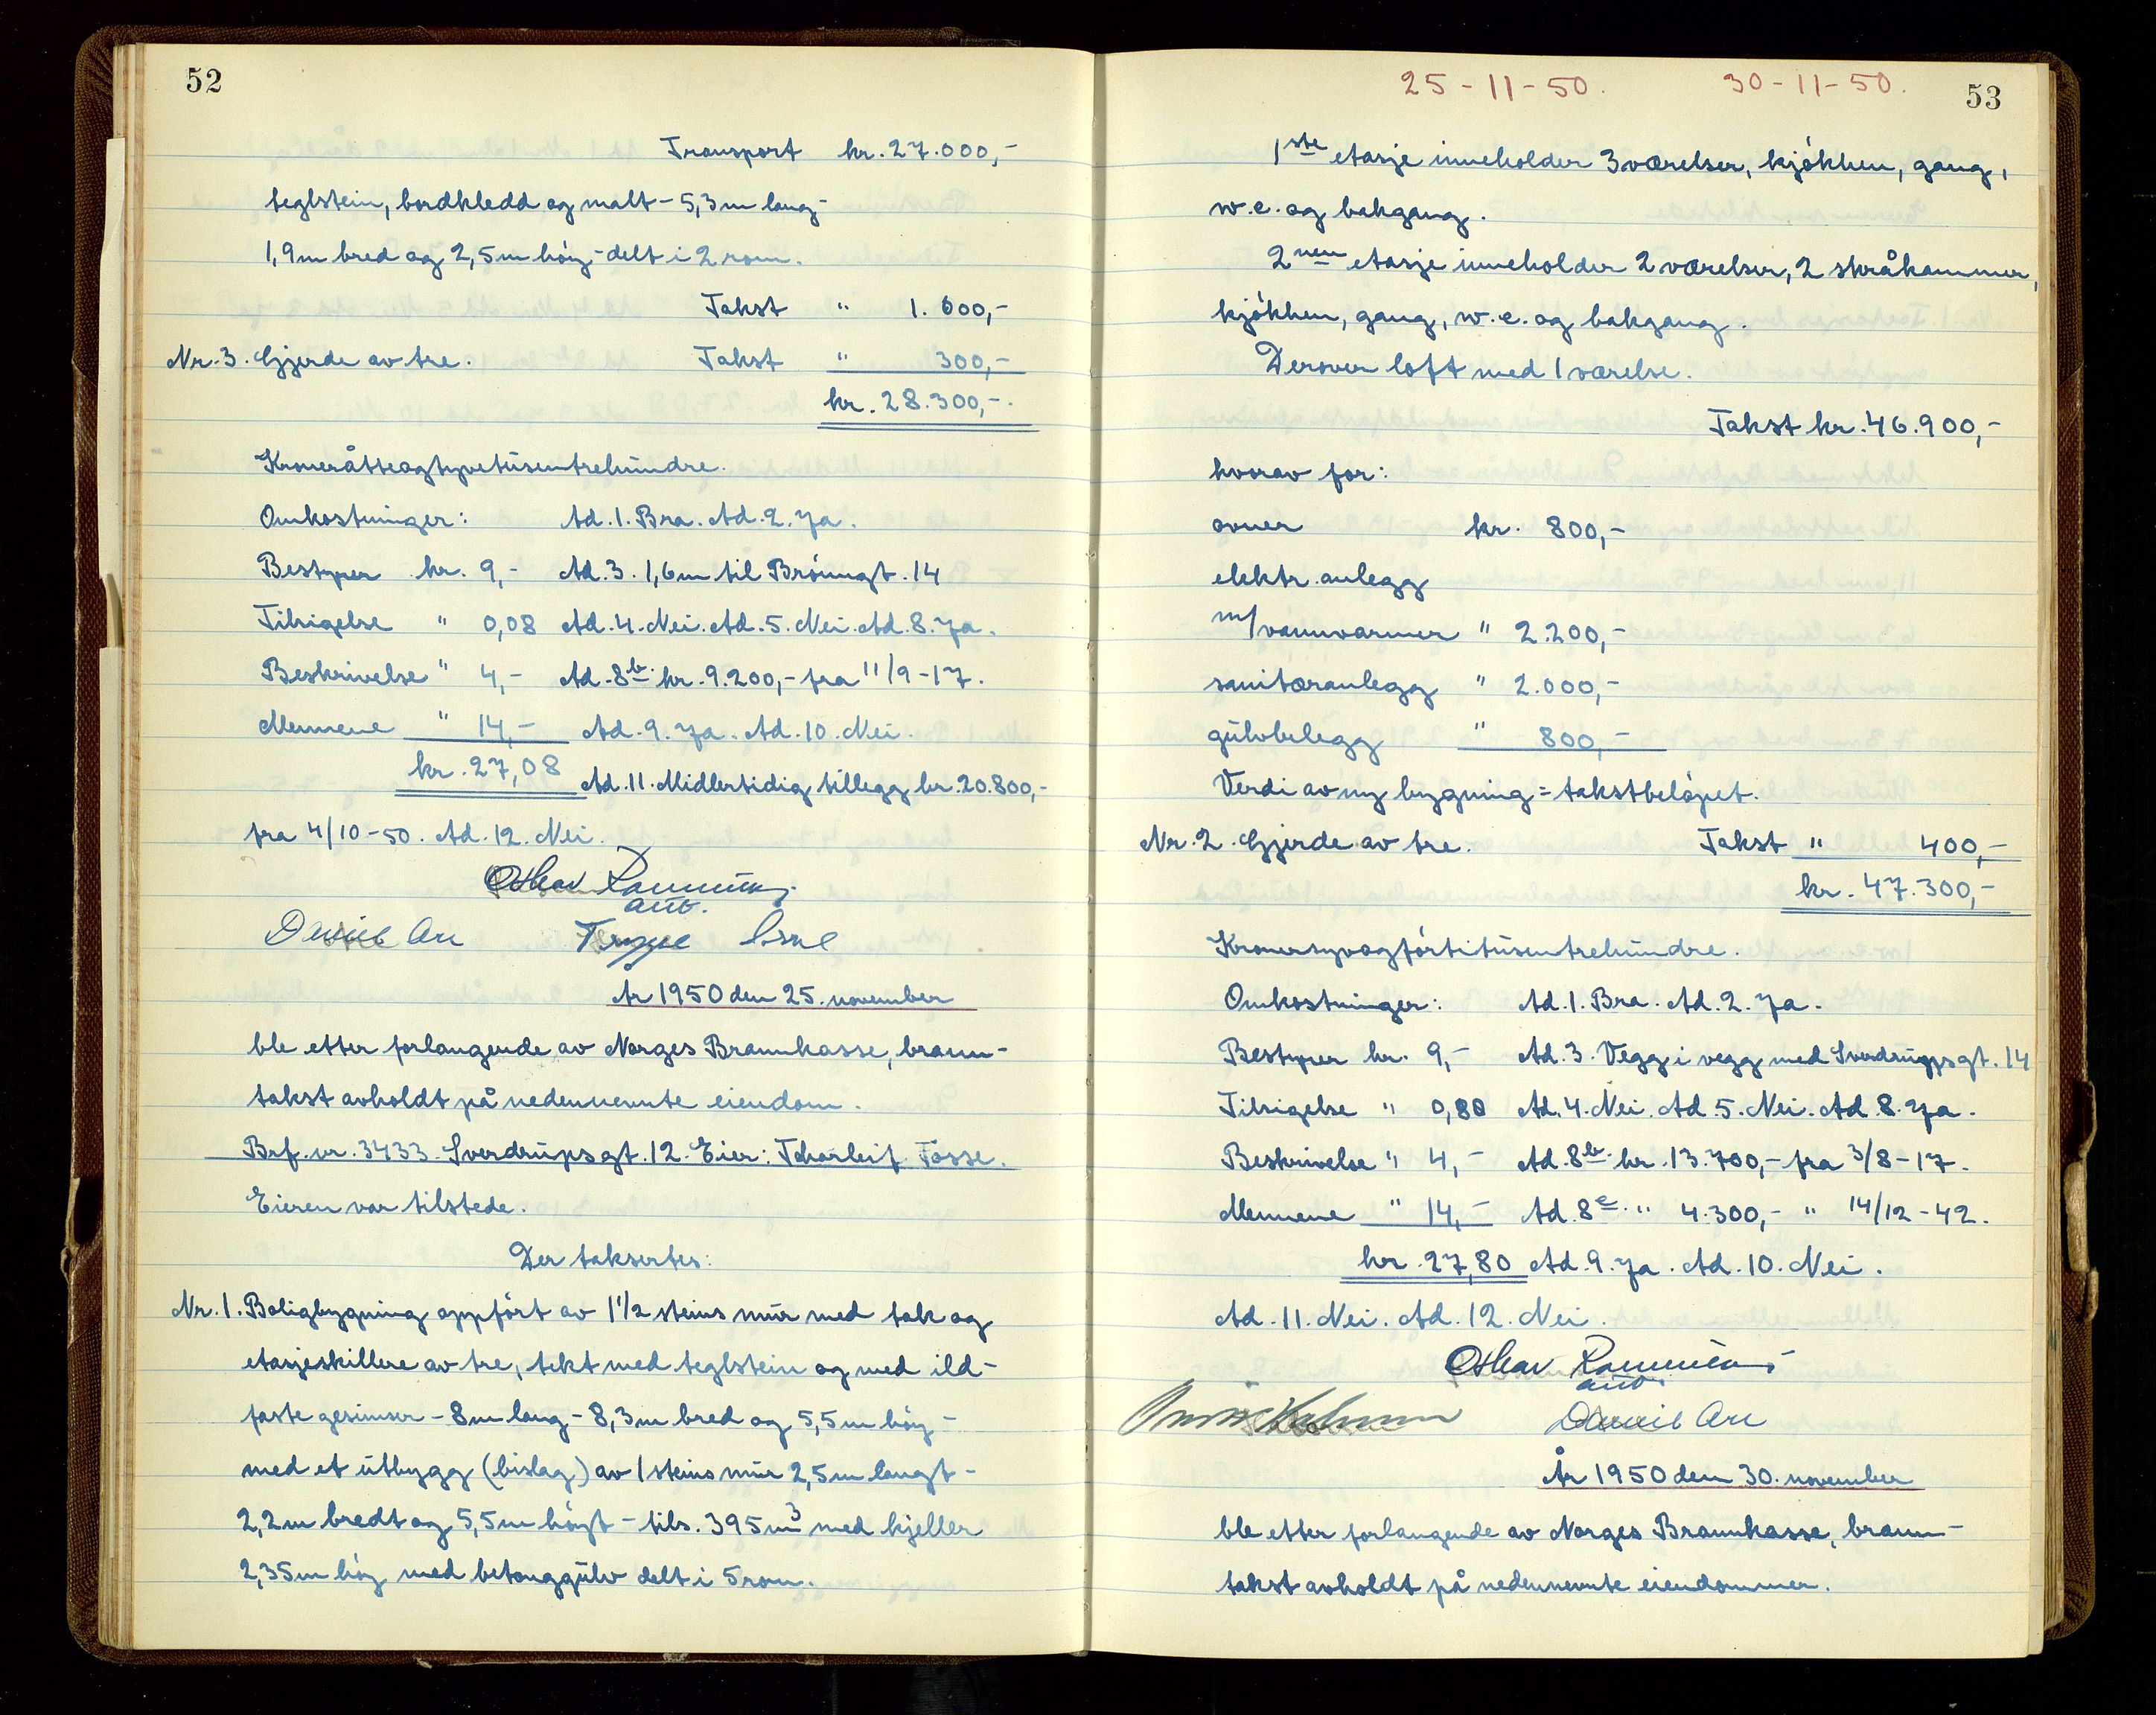 52
Transport kr. 27.000,-
teglstein, bordkledd og malt - 5,3 m lang -
1,9 m bred og 2,5 m høy - delt i 2 rom.
Takst " 1.000,-
Nr. 3. Gjerde av tre. Takst " 300,-
kr. 28.300,-
Kroneråtteogtyvetusentrehundre.
Omkostninger: Ad. 1. Bra. Ad. 2. Ja.
Bestyrer kr. 9,- Ad. 3. 1,6 m til Brönngt. 14
Tilsigelse " 0,08 Ad. 4. Nei. Ad. 5. Nei. Ad. 8. Ja.
Beskrivelse " 4,- Ad. 8b. kr. 9.200,- fra 11/9-17.
Mennene " 14,- Ad. 9. Ja. Ad. 10. Nei.
kr. 27,08 Ad. 11. Midlertidig tillegg kr. 20.800,-
fra 4/10-50. Ad. 12. Nei.
aut.
År 1950 den 25. november
ble etter forlangende av Norges Brannkasse, brann-
takst avholdt på nedennevnte eiendom.
Brf. nr. 3433. Sverdrupsgt. 12. Eier: Thorleif Tosse.
Eieren var tilstede.
Der taksertes:
Nr. 1. Boligbygning oppfört av 1 1/2 steins mur med tak og
etasjeskillere av tre, tekt med teglstein og med ild-
faste gesimser - 8 m lang - 8,3 m bred og 5,5 m höy -
med et utbygg (bislag) av 1 steins mur 2,5 m langt -
2,2 m bredt og 5,5 m höyt - tils. 395 m3 med kjeller
2,35 m höy med betonggulv delt i 5 rom.
25-11-50. 30-11-50.
53
1ste etasje inneholder 3 værelser, kjökken, gang,
w.c. og bakgang.
2nen etasje inneholder 2 værelser, 2 skråkammer,
kjökken, gang, w.c. og bakgang.
Derover loft med 1 værelse.
Takst kr. 46.900,-
hvorav for:
ovner kr. 800,-
elektr. anlegg
m/vannvarmer " 2.200,-
sanitæranlegg " 2.000,-
gulvbelegg " 800,-
Verdi av ny bygning = takstbelöpet.
Nr. 2. Gjerde av tre. Takst " 400,-
kr. 47.300,-
Kronersyvogförtitusentrehundre.
Omkostninger: Ad. 1. Bra. Ad. 2. Ja.
Bestyrer kr. 9,- Ad. 3. Vegg i vegg med Sverdrupsgt. 14
Tilsigelse " 0,80 Ad. 4. Nei. Ad. 5. Nei. Ad. 8. Ja.
Beskrivelse " 4,- Ad. 8b. kr. 13.700,- fra 3/8-17.
Mennene " 14,- Ad. 8c. " 4.300,- " 14/12-42.
kr. 27,80 Ad. 9. Ja. Ad. 10. Nei.
Ad. 11. Nei. Ad. 12. Nei.
aut.
År 1950 den 30. november
ble etter forlangende av Norges Brannkasse, brann-
takst avholdt på nedennevnte eiendommer.